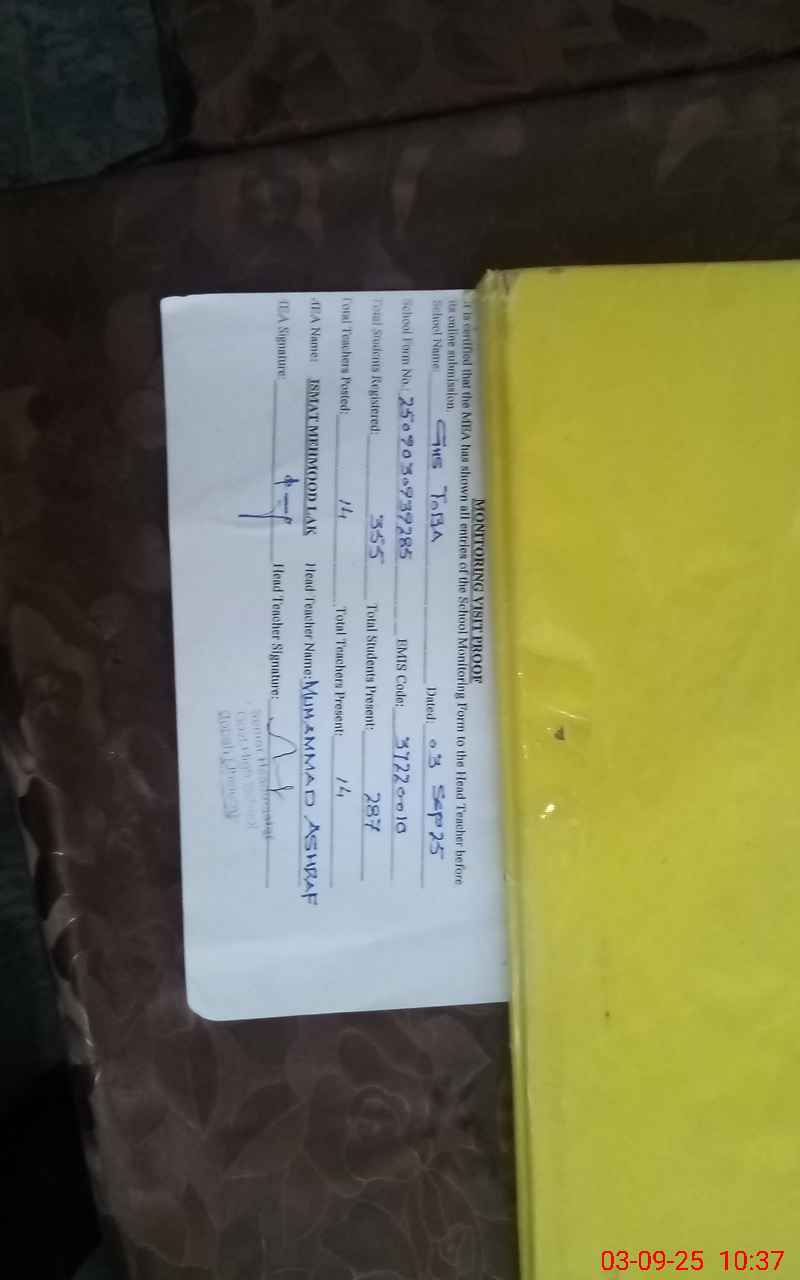 MONITORING VISIT PROOF
It is certified that the MEA has shown all entries of the School Monitoring Form to the Head Teacher before
its online submission.
School Name: GHS TOBA Dated: 03 Sep 25
School Form No.: 2509030939285 EMIS Code: 37220010
Total Students Registered: 355 Total Students Present: 287
Total Teachers Posted: 14 Total Teachers Present: 14
MEA Name: ISMAT MEHMOOD LAK Head Teacher Name: MUHAMMAD ASHRAF
MEA Signature: Head Teacher Signature:
Senior Headmaster
Govt High School
03-09-25 10:37